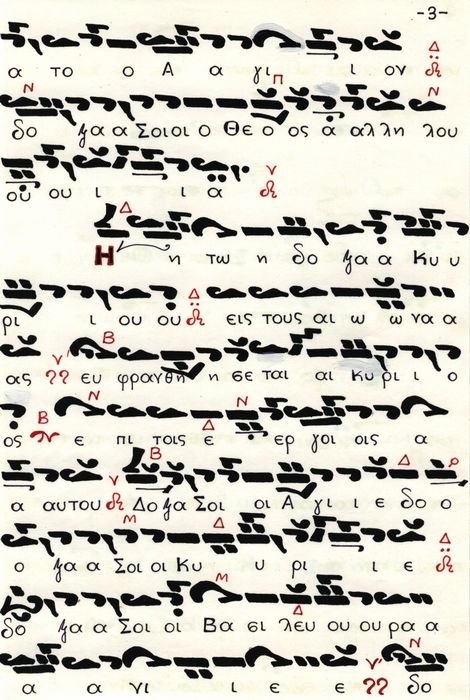 -3-
α το ο Α α γι ι ον
δο ξα α Σοι οι ο Θε ο ος α αλ λη λου
ου ου ι ι α
Η η τω η δο ξα α Κυ υ
ρι ι ου ου εις τους αι ω ω να α
ας ευ φρανθη η σε ται αι κυ ρι ι ο
ος ε πι τοις ε ερ γοι οις α
α αυτου Δο ξα Σοι οι Α γι ι ε δο ο
ο ξα α Σοι οι Κυ υ ρι ι ε
δο ξα α Σοι οι Βα σι λευ ου ου ρα α
α α νι ι ε ε δο